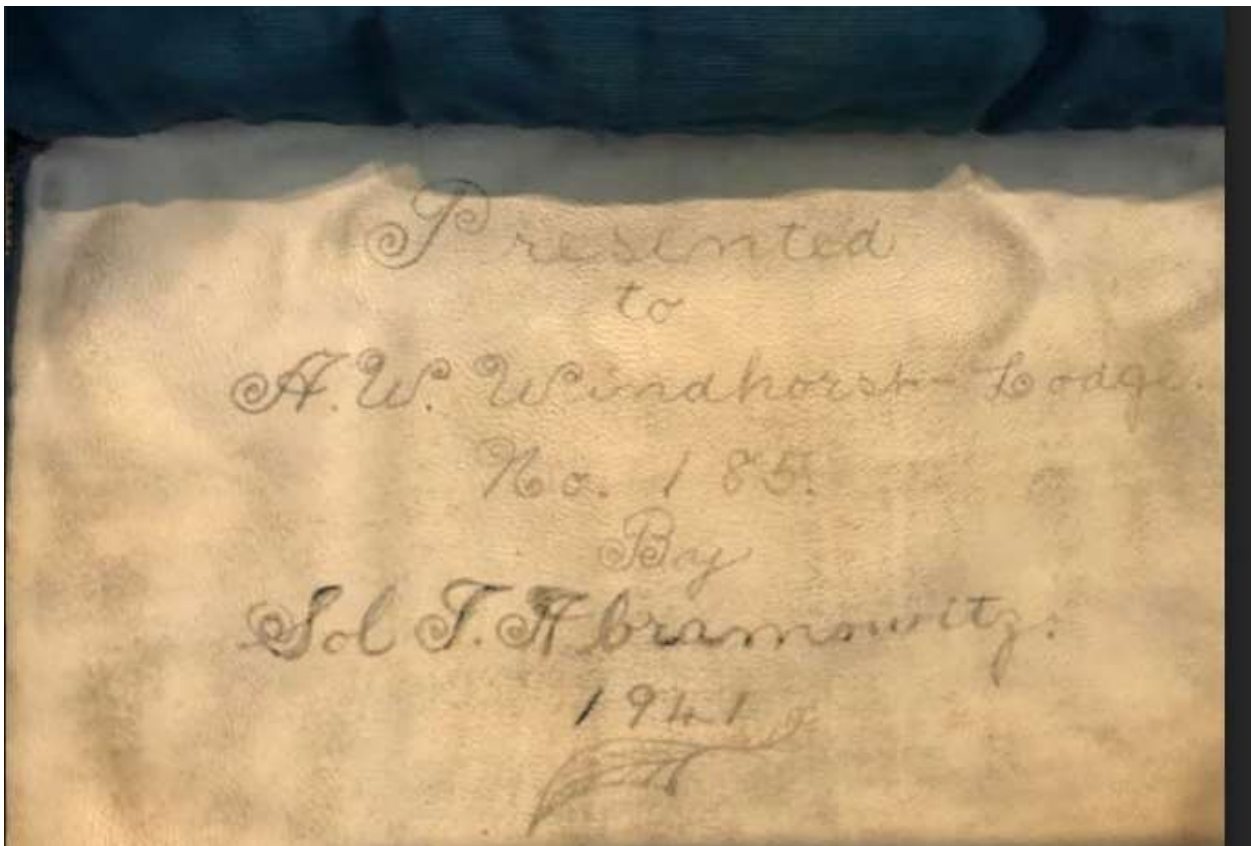 Presented
to
A. W. Windhorst Lodge.
No. 185.
By
Sol T. Abramowitz.
1941